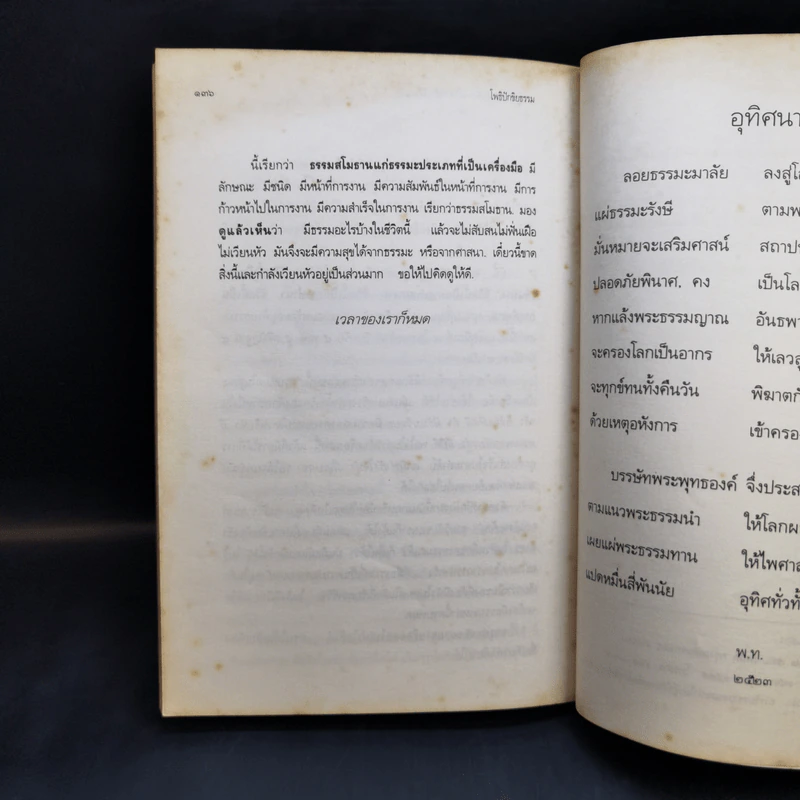 ๑๓๖
โพธิปักขิยธรรม
นี้เรียกว่า ธรรมสโมธานแก่ธรรมะประเภทที่เป็นเครื่องมือ มี
ลักษณะ มีชนิด มีหน้าที่การงาน มีความสัมพันธ์ในหน้าที่การงาน มีการ
ก้าวหน้าไปในการงาน มีความสำเร็จในการงาน เรียกว่าธรรมสโมธาน. มอง
ดูแล้วเห็นว่า มีธรรมอะไรบ้างในชีวิตนี้ แล้วจะไม่สับสนไม่ฟั่นเฝือ
ไม่เวียนหัว มันจึงจะมีความสุขได้จากธรรมะ หรือจากศาสนา. เดี๋ยวนี้ขาด
สิ่งนี้และกำลังเวียนหัวอยู่เป็นส่วนมาก ขอให้ไปคิดดูให้ดี.
เวลาของเราก็หมด
อุทิศนา
ลอยธรรมะมาลัย ลงสู่โ
แผ่ธรรมะรังษี ตามพ
มั่นหมายจะเสริมศาสน์ สถาปน
ปลอดภัยพินาศ, คง เป็นโล
หากแล้งพระธรรมญาณ อันธพา
จะครองโลกเป็นอากร ให้เลวสู
จะทุกข์ทนทั้งคืนวัน พิฆาตกั
ด้วยเหตุอหังการ เข้าครอ
บรรษัทพระพุทธองค์ จึ่งประส
ตามแนวพระธรรมนำ ให้โลกผ
เผยแผ่พระธรรมทาน ให้ไพศาล
แปดหมื่นสี่พันนัย อุทิศทั่วทั้
พ.ท.
๒๕๒๓